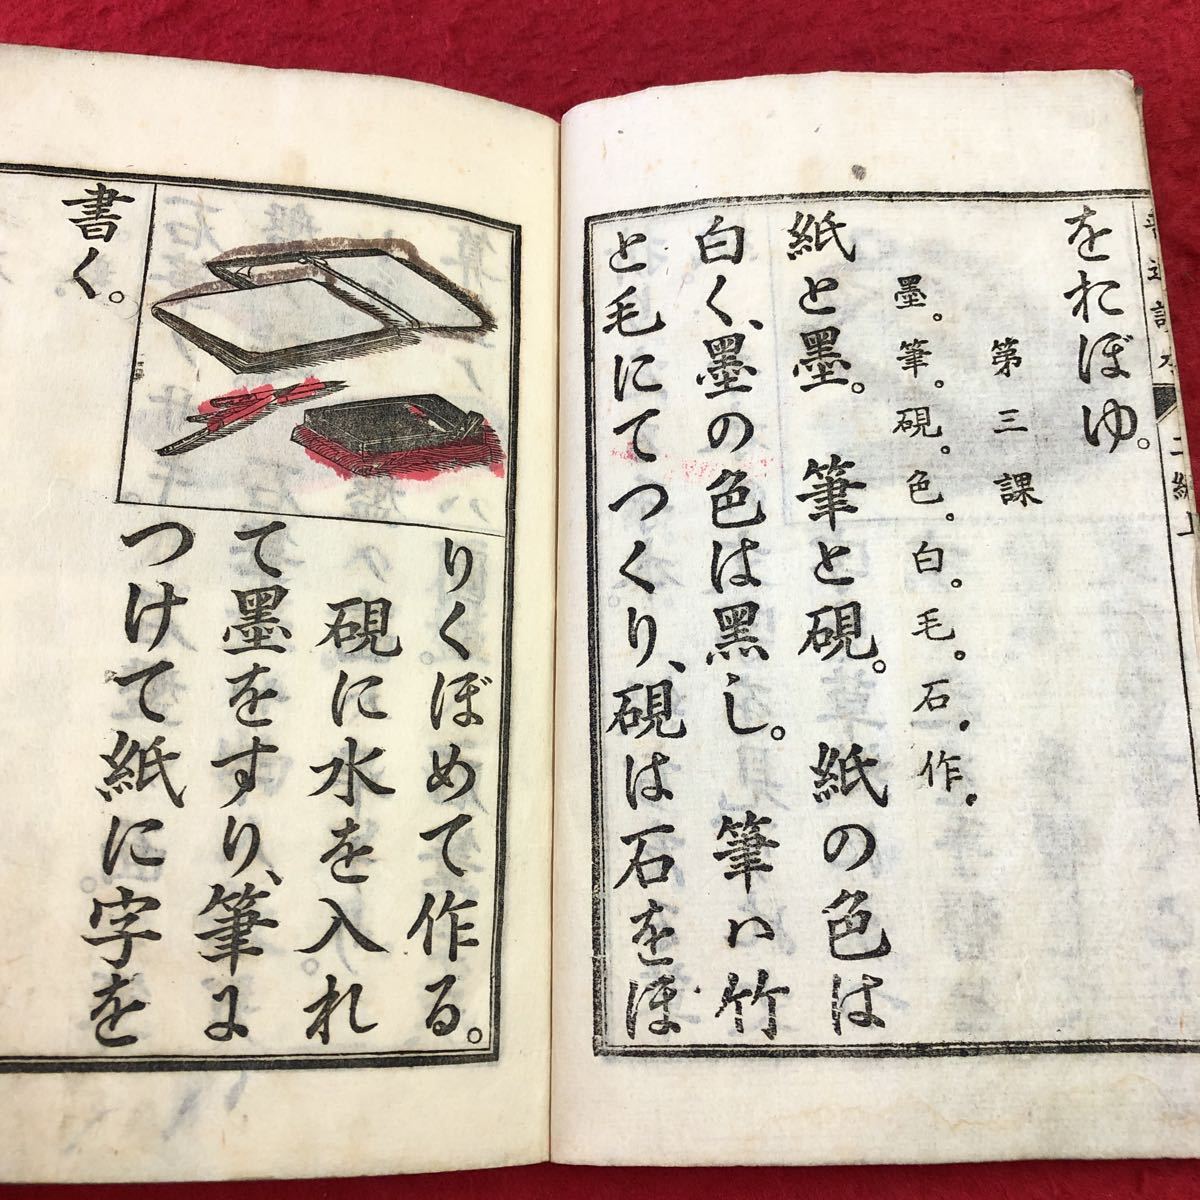 をおぼゆ。
第三課
墨。筆。硯。色。白。毛。石。作。
紙と墨。筆と硯。紙の色は
白く、墨の色は黒し。筆ハ竹
と毛にてつくり、硯は石をほ
りくぼめて作る。
硯に水を入れ
て墨をすり、筆に
つけて紙に字を
書く。